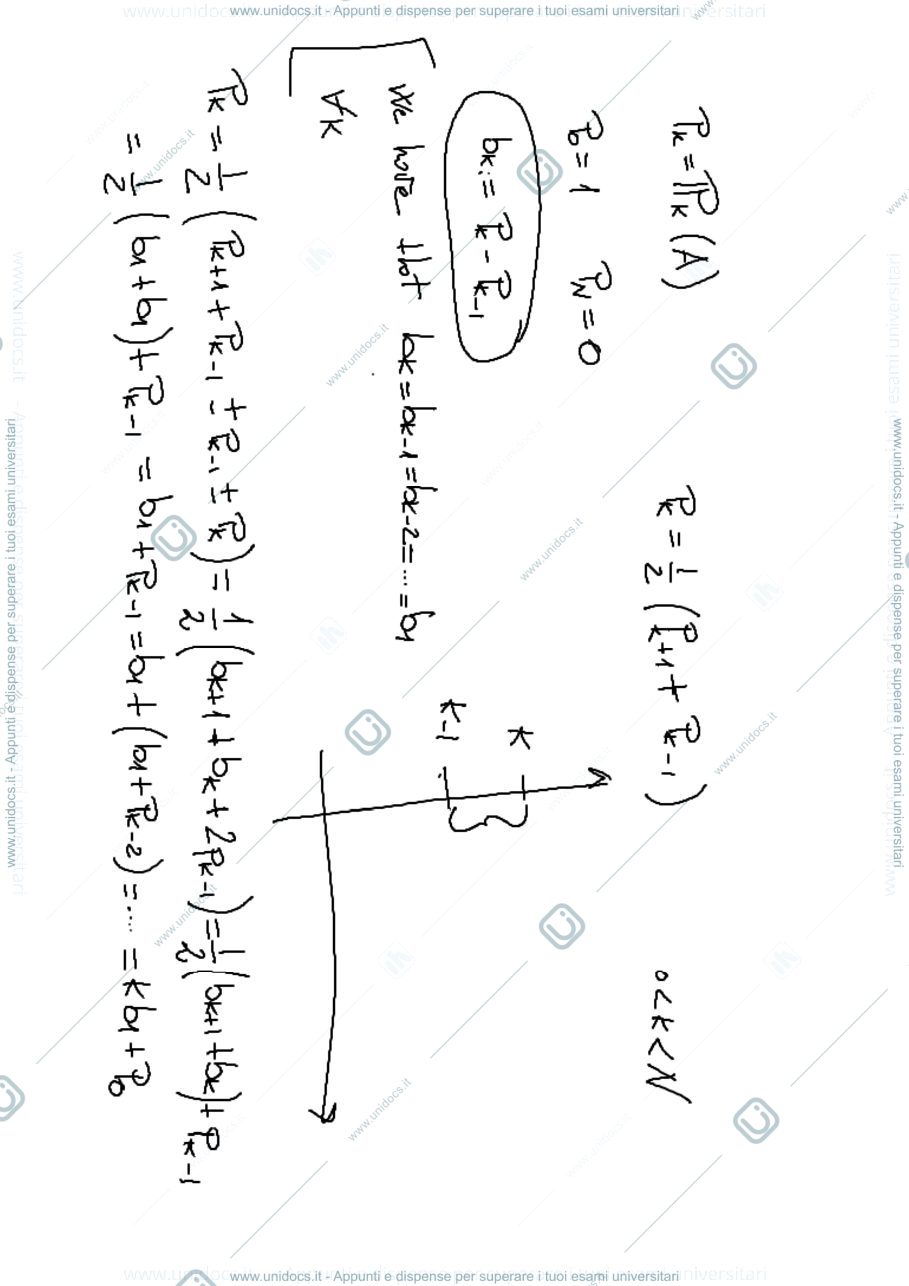 www.unidocs.it - Appunti e dispense per superare i tuoi esami universitari
P_k = ℙ_k (A)
P_k = 1/2 (P_{k+1} + P_{k-1})
0 < k < N
P_0 = 1
P_N = 0
b_k := P_k - P_{k-1}
k
k-1
We have that b_k = b_{k-1} = b_{k-2} = ... = b_1
∀k
P_k = 1/2 (P_{k+1} + P_{k-1} ± P_{k-1} ± P_k) = 1/2 (b_{k+1} + b_k + 2P_{k-1}) = 1/2 (b_{k+1} + b_k) + P_{k-1}
= 1/2 (b_1 + b_1) + P_{k-1} = b_1 + P_{k-1} = b_1 + (b_1 + P_{k-2}) = ... = k b_1 + P_0
www.unidocs.it - Appunti e dispense per superare i tuoi esami universitari
www.unidocs.it - Appunti e dispense per superare i tuoi esami universitari
www.unidocs.it - Appunti e dispense per superare i tuoi esami universitari
www.unidocs.it
www.unidocs.it
www.unidocs.it
www.unidocs.it
www.unidocs.it
www.unidocs.it